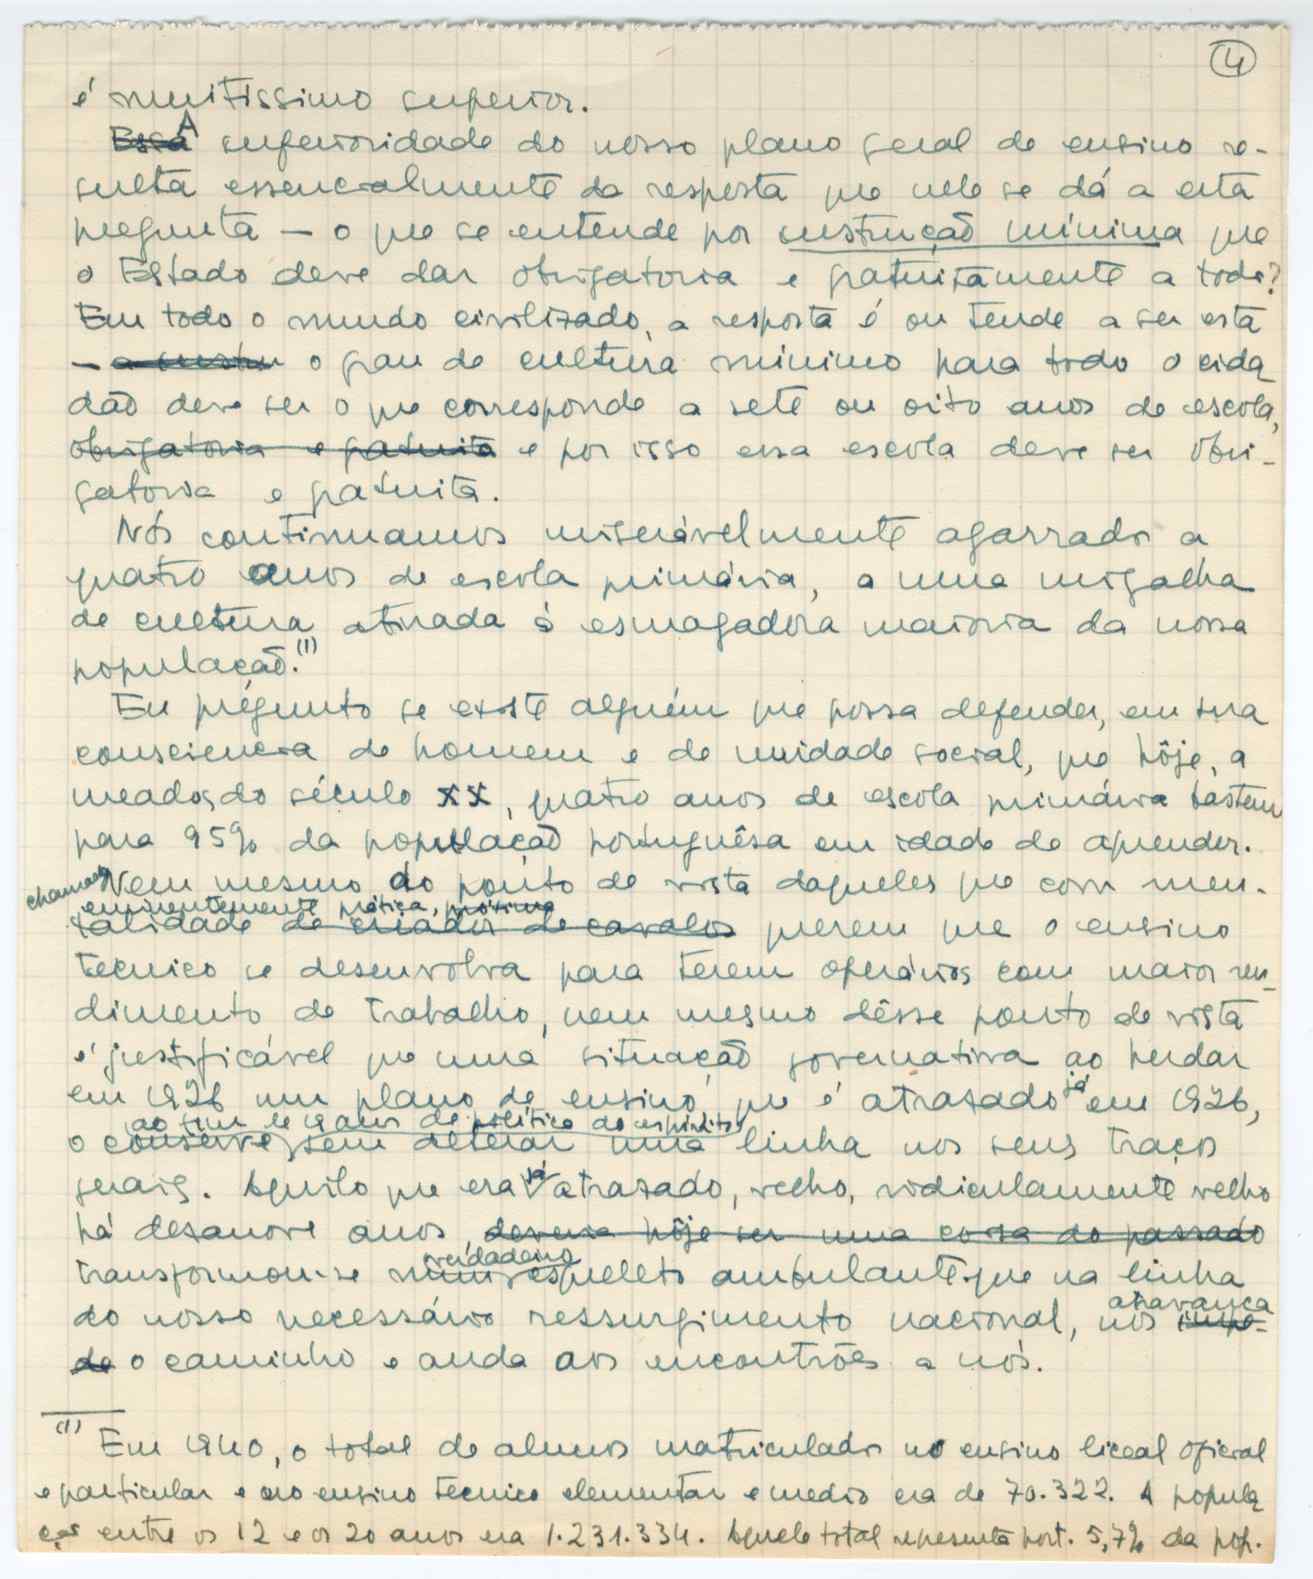 4
é muitissimo superior.
Essa A inferioridade do nosso plano geral de ensino re-
sulta essencialmente da resposta que nele se dá a esta
pregunta — o que se entende por instrução mínima que
o Estado deve dar obrigatoria e gratuitamente a todos?
Em todo o mundo civilizado, a resposta é ou tende a ser esta
— o grau de cultura mínimo para todo o cida
dão deve ser o que corresponde a sete ou oito anos de escola,
obrigatoria e gratuita e por isso essa escola deve ser obri-
gatoria e gratuita.
Nós continuamos miserávelmente agarrados a
quatro anos de escola primária, a uma migalha
de cultura atirada à esmagadora maioria da nossa
população.(1)
Eu pregunto se existe alguém que possa defender, em sua
consciencia de homem e de unidade social, que hôje, a
meados do século XX, quatro anos de escola primária bastem
para 95% da população portuguêsa em idade de aprender.
Nem mesmo do ponto de vista daqueles que com men-
chamada eminentemente prática, próxima
talidade de criador de cavalos querem que o ensino
tecnico se desenvolva para terem operários com maior ren-
dimento de trabalho, nem mesmo dêsse ponto de vista
é justificável que uma situação governativa ao herdar
em 1926 um plano de ensino que é atrasado já em 1926,
ao fim de 19 anos de política do espírito,
o conserve sem alterar uma linha nos seus traços
gerais. Aquilo que era já atrasado, velho, ridiculamente velho
há desanove anos, deveria hôje ser uma coisa do passado
transformou-se num verdadeiro esqueleto ambulante que na linha
do nosso necessário ressurgimento nacional, nos impe- atravanca
de o caminho e anda aos encontrões a nós.
(1) Em 1940, o total de alunos matriculados no ensino liceal oficial
e particular e no ensino tecnico elementar e medio era de 70.322. A popula
ção entre os 12 e os 20 anos era 1.231.334. Aquele total representa port. 5,7% da pop.